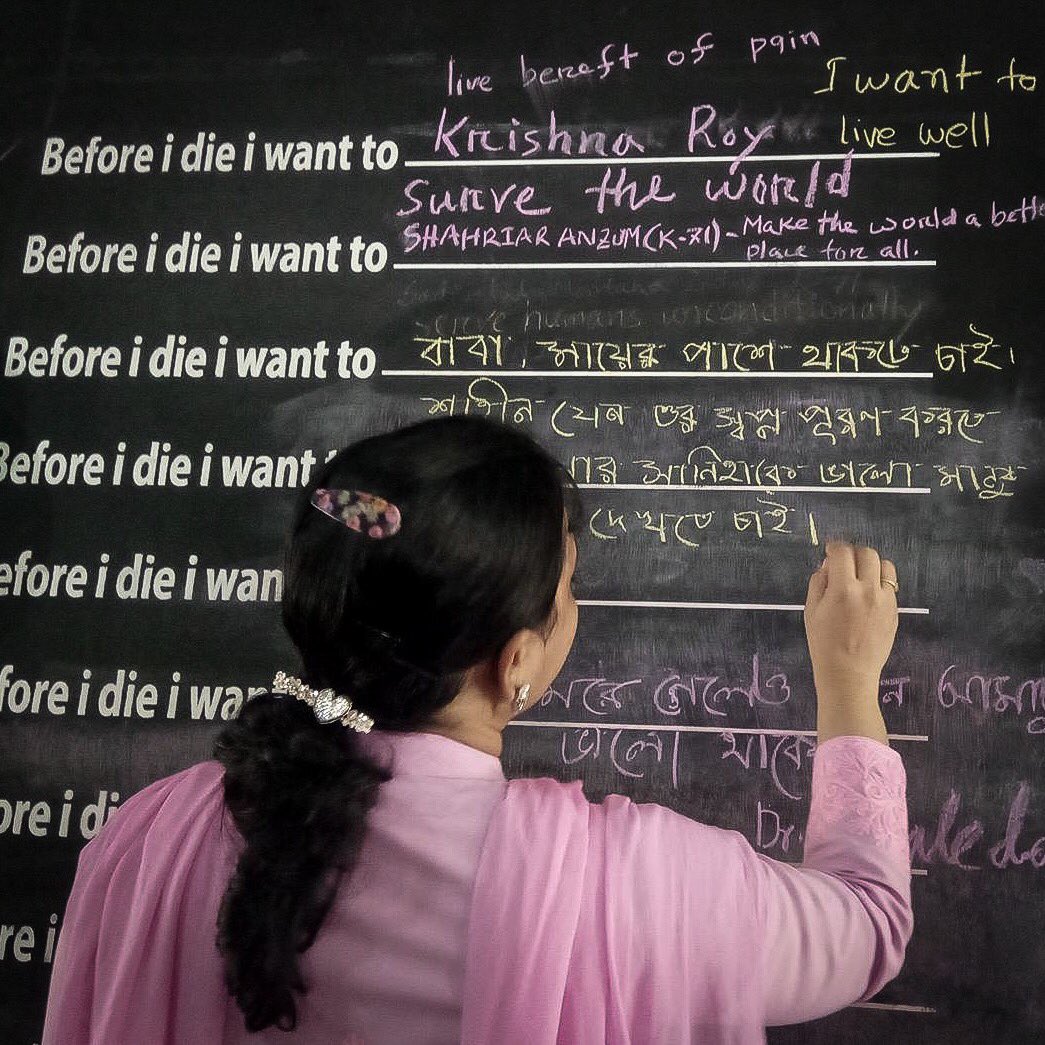 live bereft of pain
I want to
live well
Before i die i want to Kreishna Roy
surve the world
Before i die i want to SHAHRIAR ANZUM (K-71) - Make the world a bette
place fore all.
humans unconditionally
Before i die i want to বাবা, মায়ের পাশে থাকতে চাই।
যেন ওর স্বপ্ন পূরণ করতে
Before i die i want ভালো মানুষ
দেখতে চাই।
efore i die i wan
fore i die i wan মরে গেলেও
ভালো থাকে
ore i di Dr.
re i